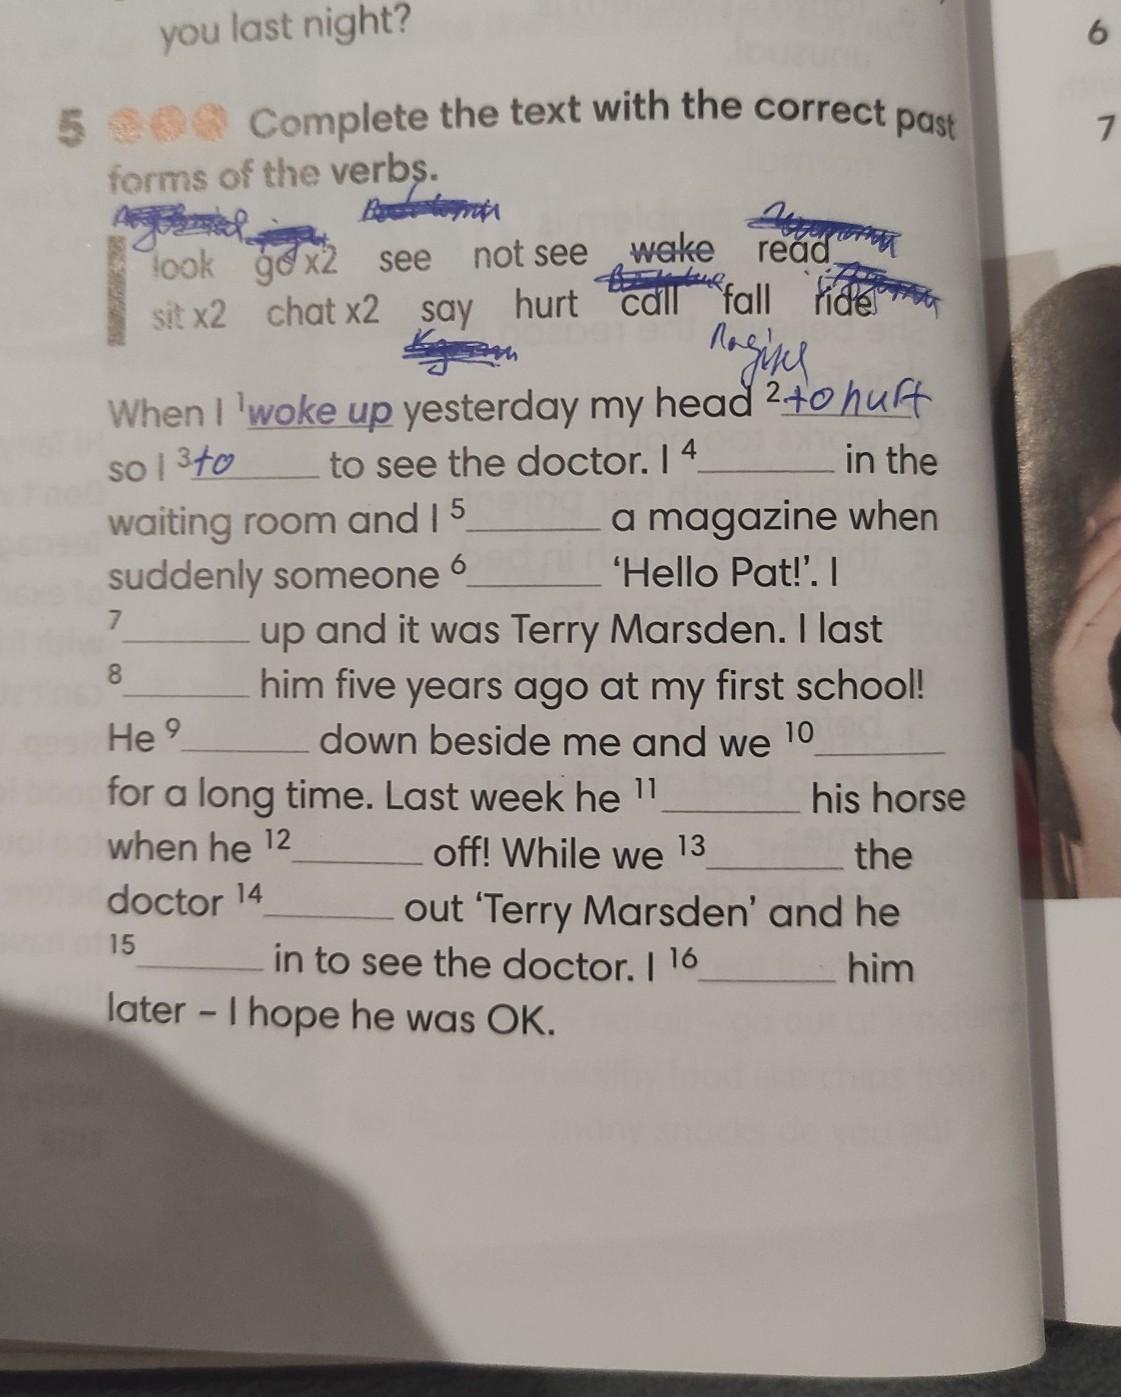 you last night?
5 Complete the text with the correct past
forms of the verbs.
look go x2 see not see wake read
sit x2 chat x2 say hurt call fall ride
When I 1 woke up yesterday my head 2 to hurt
so I 3 to to see the doctor. I 4 in the
waiting room and I 5 a magazine when
suddenly someone 6 'Hello Pat!'. I
7 up and it was Terry Marsden. I last
8 him five years ago at my first school!
He 9 down beside me and we 10
for a long time. Last week he 11 his horse
when he 12 off! While we 13 the
doctor 14 out 'Terry Marsden' and he
15 in to see the doctor. I 16 him
later – I hope he was OK.
6
7